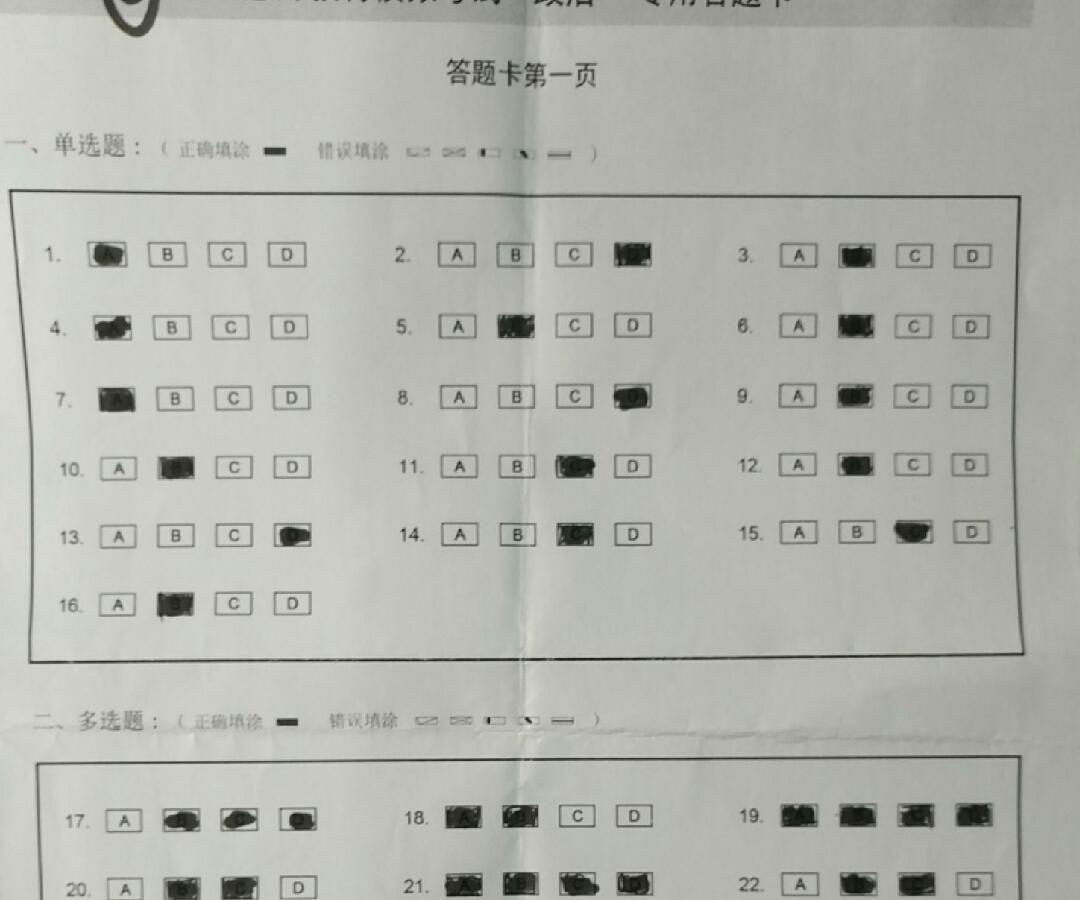 专用答题卡
答题卡第一页
一、单选题：（ 正确填涂 错误填涂 ）
1. A B C D 2. A B C D 3. A B C D
4. B C D 5. A B C D 6. A B C D
7. A B C D 8. A B C D 9. A B C D
10. A B C D 11. A B C D 12. A B C D
13. A B C D 14. A B C D 15. A B C D
16. A B C D
二、多选题：（ 正确填涂 错误填涂 ）
17. A B C D 18. A B C D 19. A B C D
20. A B C D 21. A B C D 22. A B C D